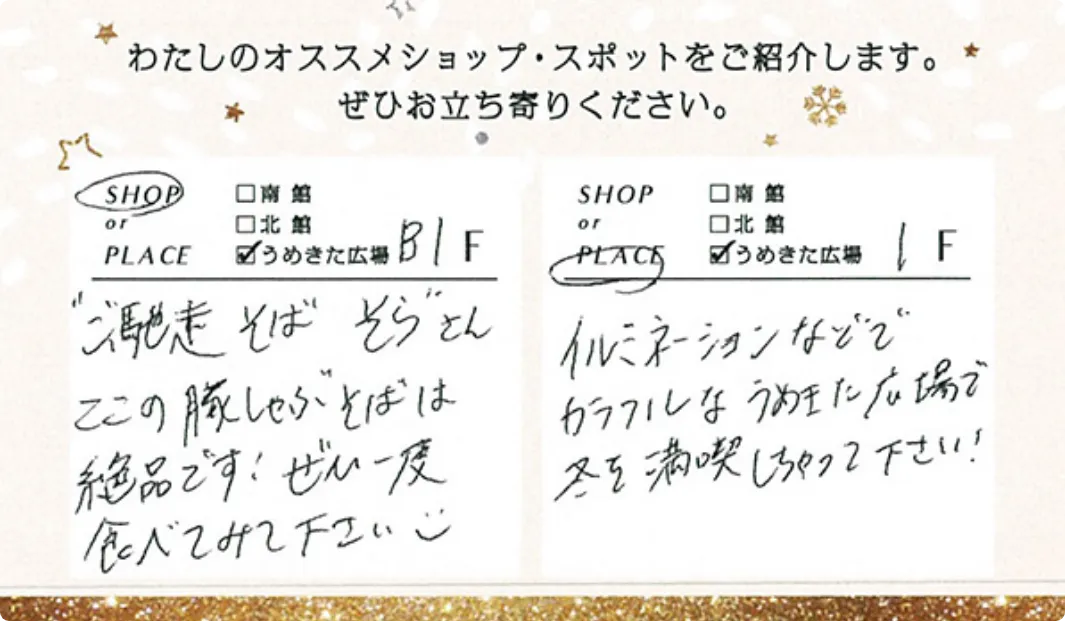 わたしのオススメショップ・スポットをご紹介します。
ぜひお立ち寄りください。
SHOP
or
PLACE
□南館
□北館
☑うめきた広場 B1F
"ご馳走 そば そら"さん
ここの豚しゃぶそばは
絶品です!ぜひ一度
食べてみて下さい
SHOP
or
PLACE
□南館
□北館
☑うめきた広場 1F
イルミネーションなどで
カラフルな うめきた広場で
冬を満喫しちゃって下さい!